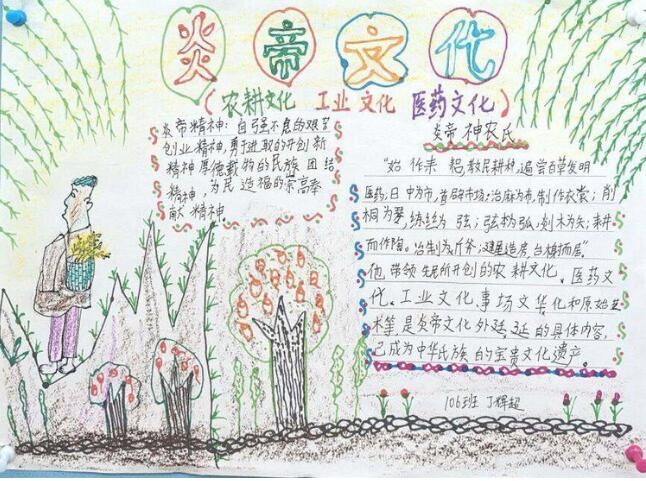 炎帝文化
(农耕文化 工业文化 医药文化)
炎帝精神:自强不息的艰苦
创业精神,勇于进取的开创新
精神厚德载物的民族团结
精神,为民造福的崇高奉
献精神.
炎帝 神农氏
"始作耒耜,教民耕种,遍尝百草发明
医药;日中为市,首辟市场;治麻为布,制作衣裳;削
桐为琴,练丝为弦;弦木为弧,剡木为矢;耕
而作陶。冶制为斤斧;建屋造房,台榭而居"
他带领先民所开创的农耕文化、医药文
化、工业文化、市场文化和原始艺
术等,是炎帝文化外延的具体内容,
已成为中华民族的宝贵文化遗产.
106班 丁辉超